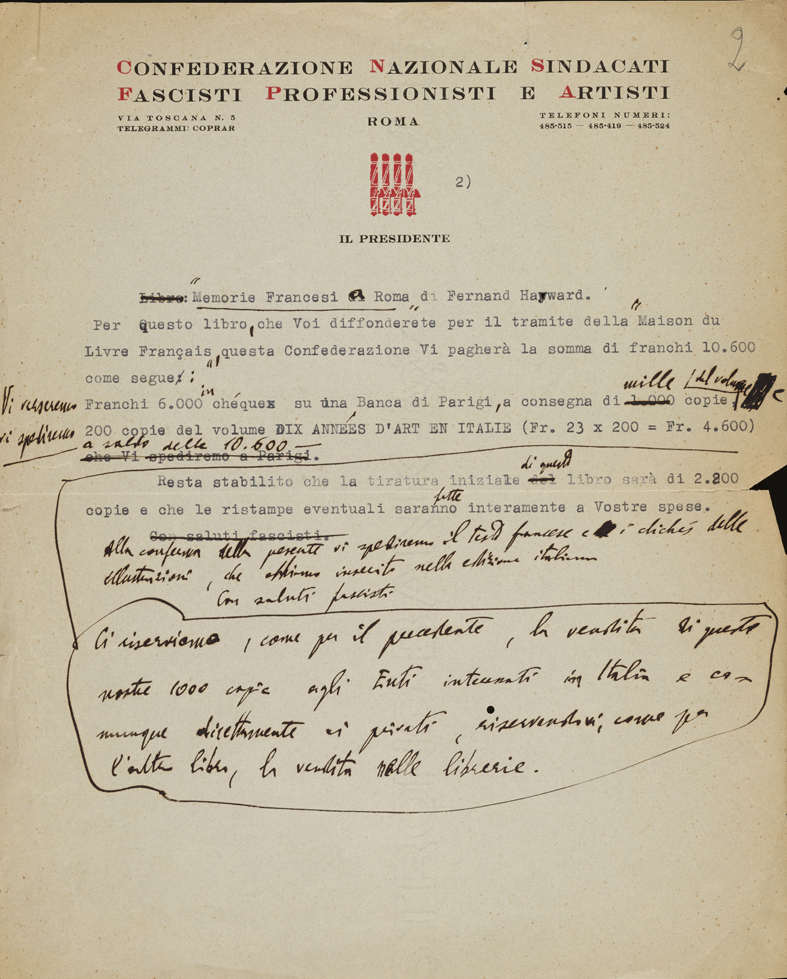 2
CONFEDERAZIONE NAZIONALE SINDACATI
FASCISTI PROFESSIONISTI E ARTISTI
VIA TOSCANA N. 5
TELEGRAMMI: COPRAR
ROMA
TELEFONI NUMERI:
485-515 — 485-419 — 485-524
2)
IL PRESIDENTE
Libro: "Memorie Francesi di Roma" di Fernand Hayward.
Per questo libro, che Voi diffonderete per il tramite della "Maison du
Livre Français", questa Confederazione Vi pagherà la somma di franchi 10.600
come segue:
mille del volume e
Vi verseremo Franchi 6.000 in chéques su una Banca di Parigi, a consegna di 1.000 copie
vi spediremo 200 copie del volume DIX ANNÉES D'ART EN ITALIE (Fr. 23 x 200 = Fr. 4.600)
a saldo delle 10.600 —
che Vi spediremo a Parigi.
di questo
Resta stabilito che la tiratura iniziale del libro sarà di 2.200
fatte
copie e che le ristampe eventuali saranno interamente a Vostre spese.
Con saluti fascisti.
Alla conferma della presente vi spediremo il testo francese e i clichés delle
illustrazioni, che abbiamo inserito nella edizione italiana
Con saluti fascisti
Ci riserviamo, come per il precedente, la vendita di queste
nostre 1000 copie agli Enti interessati in Italia e co-
munque direttamente ai privati, riservandovi, come per
l'altro libro, la vendita nelle librerie.